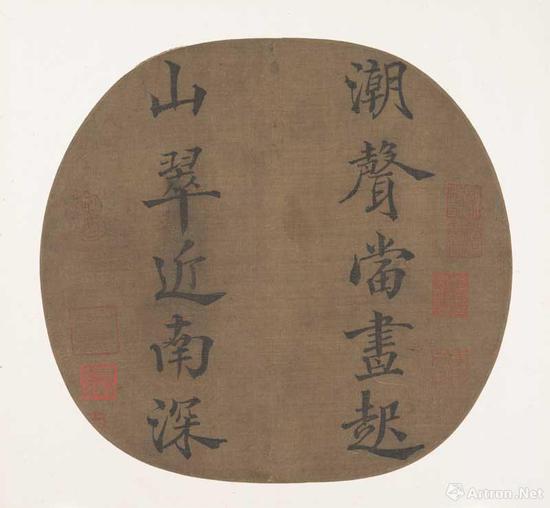 潮聲當晝起
山翠近南深
Artron.Net